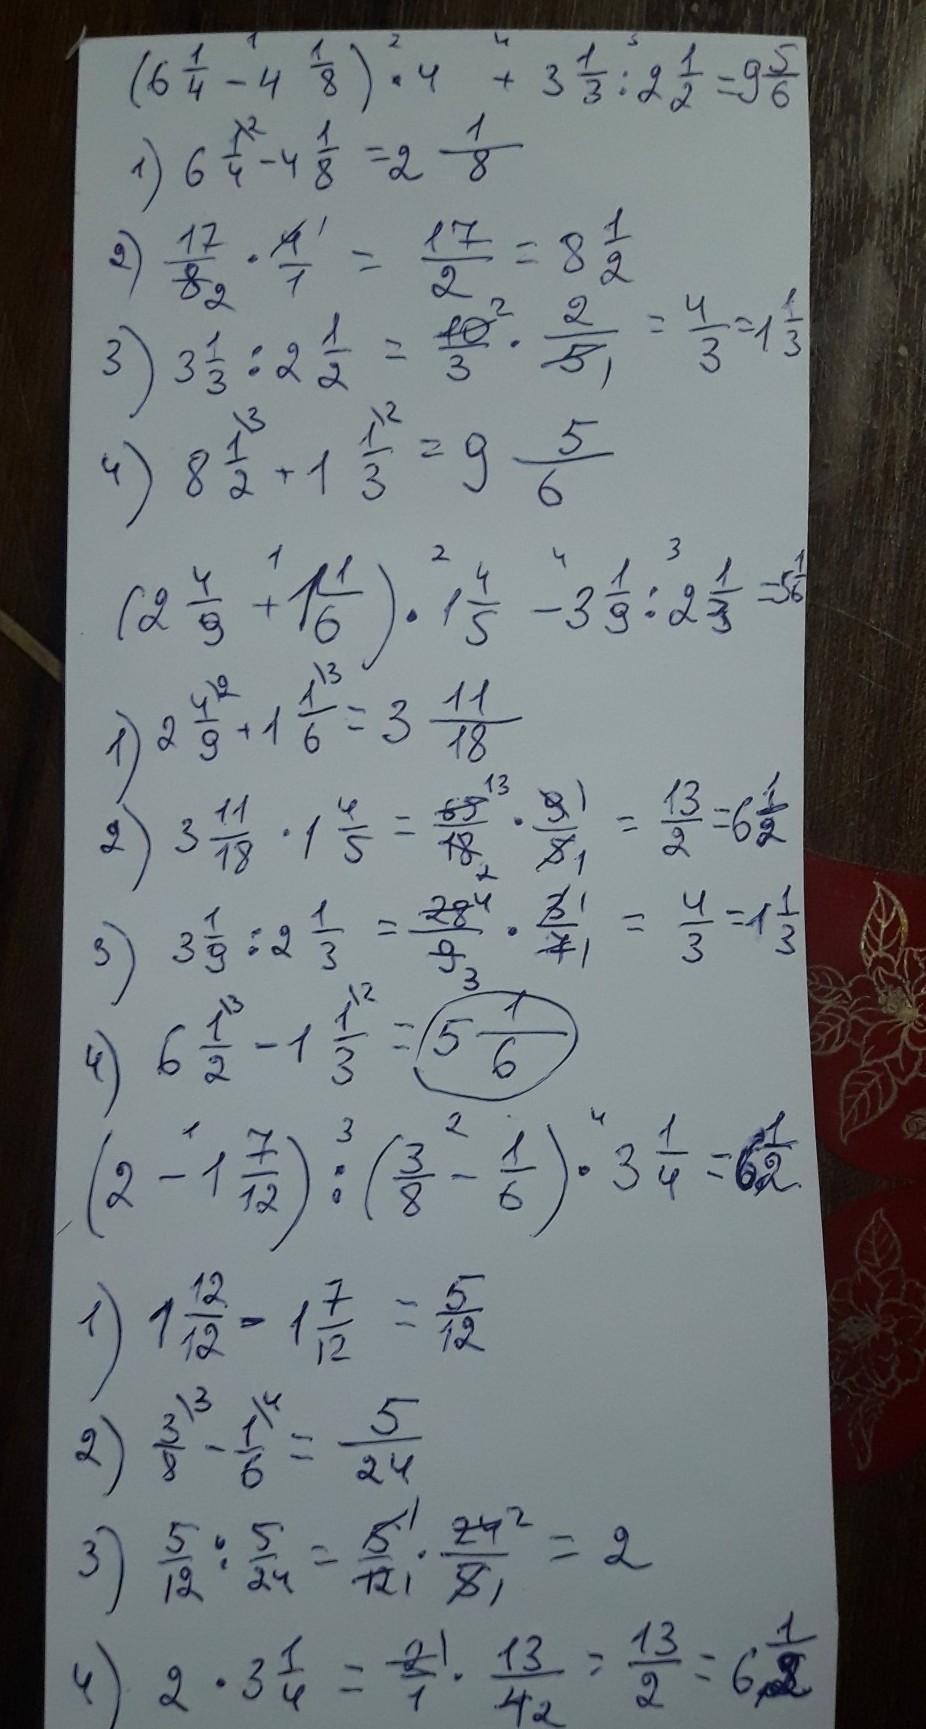 (6 1/4 - 4 1/8) · 4 + 3 1/3 : 2 1/2 = 9 5/6
1) 6 1/4 - 4 1/8 = 2 1/8
2) 17/8 · 4/1 = 17/2 = 8 1/2
3) 3 1/3 : 2 1/2 = 10/3 · 2/5 = 4/3 = 1 1/3
4) 8 1/2 + 1 1/3 = 9 5/6
(2 4/9 + 1 1/6) · 1 4/5 - 3 1/9 : 2 1/3 = 5 1/6
1) 2 4/9 + 1 1/6 = 3 11/18
2) 3 11/18 · 1 4/5 = 65/18 · 9/5 = 13/2 = 6 1/2
3) 3 1/9 : 2 1/3 = 28/9 · 3/7 = 4/3 = 1 1/3
4) 6 1/2 - 1 1/3 = 5 1/6
(2 - 1 7/12) : (3/8 - 1/6) · 3 1/4 = 6 1/2
1) 1 12/12 - 1 7/12 = 5/12
2) 3/8 - 1/6 = 5/24
3) 5/12 : 5/24 = 5/12 · 24/5 = 2
4) 2 · 3 1/4 = 2/1 · 13/4 = 13/2 = 6 1/2